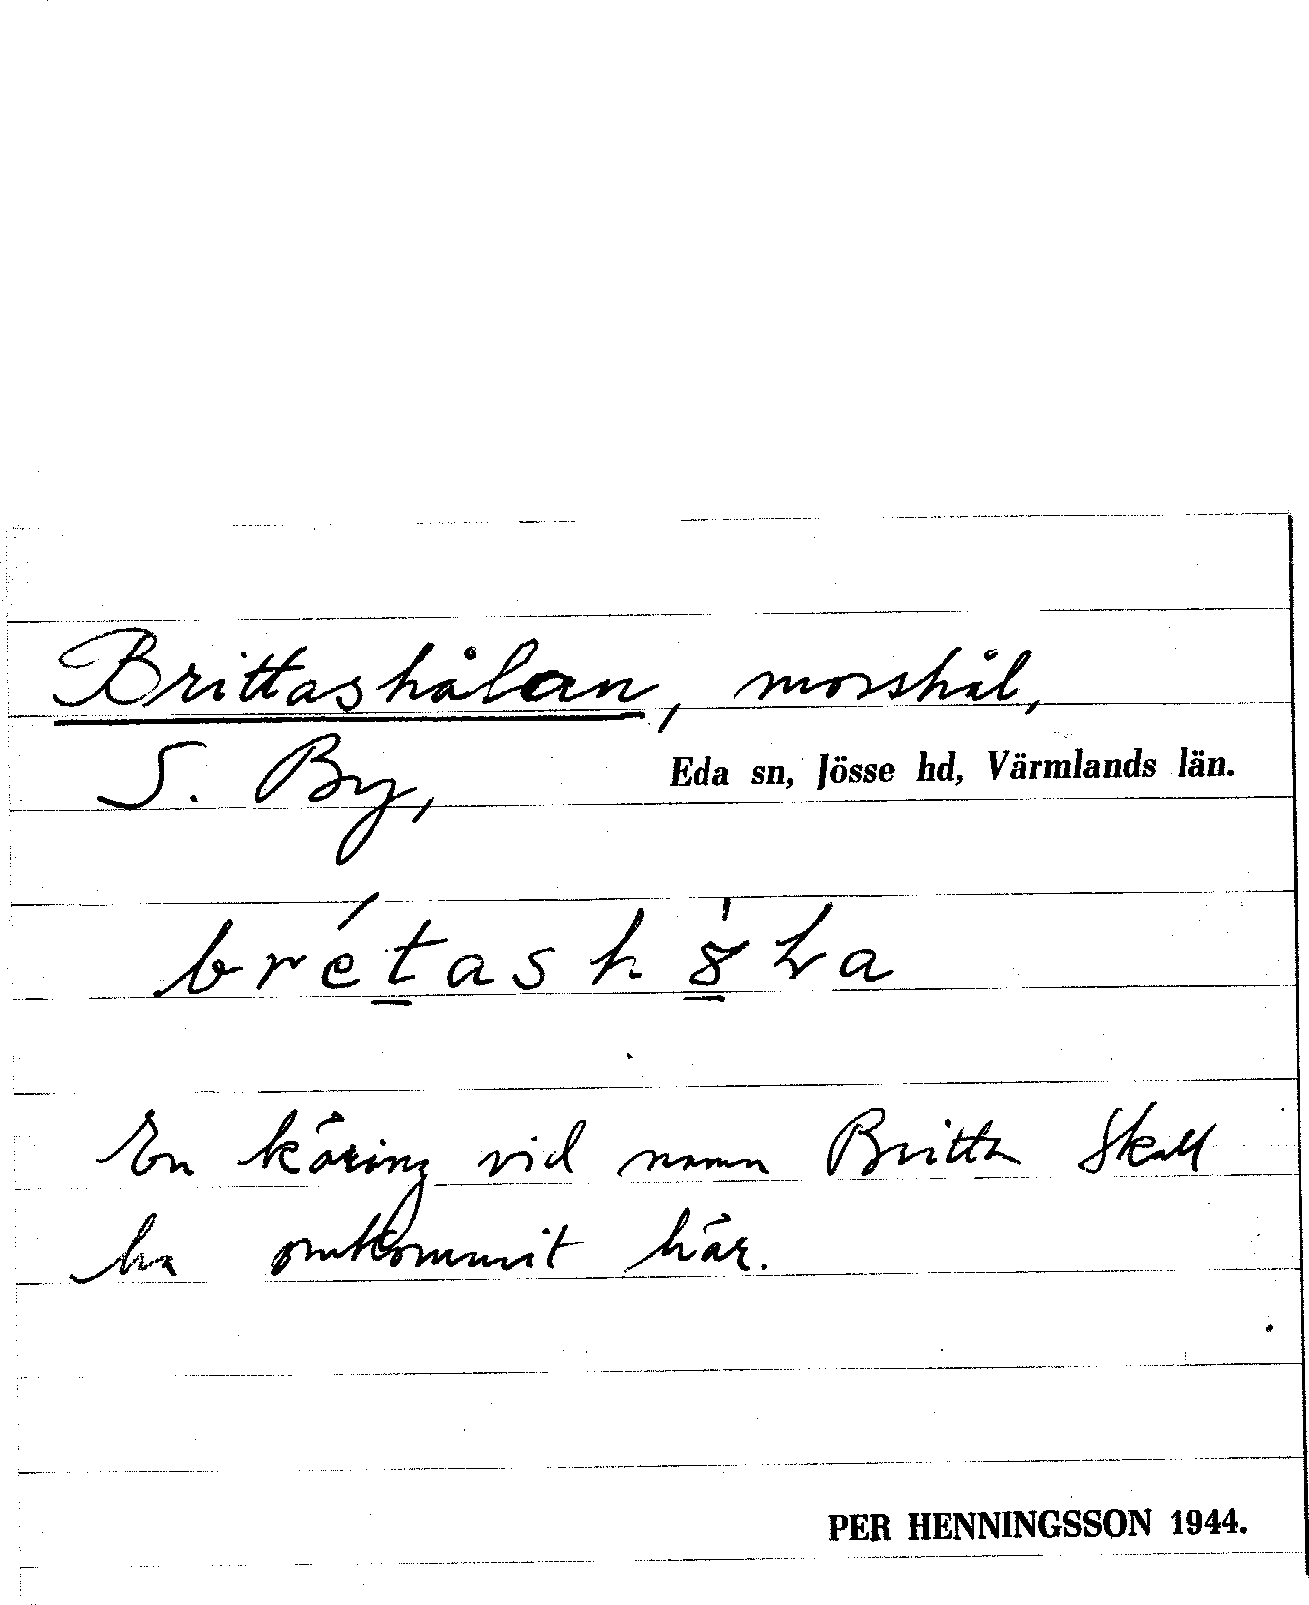 Brittashålan, mosshål,
S. By, Eda sn, Jösse hd, Värmlands län.
En käring vid namn Britta skall
ha omkommit här.
PER HENNINGSSON 1944.